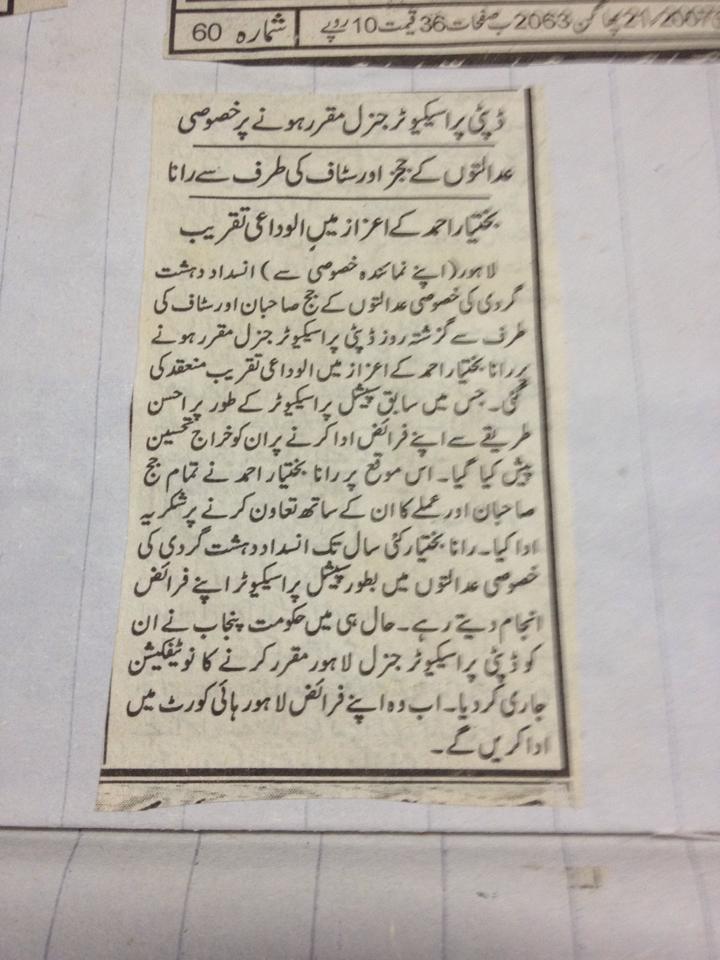 21 پھاگن 2063 ب صفحات 36 قیمت 10 روپے
شمارہ 60
ڈپٹی پراسیکیوٹر جنرل مقرر ہونے پر خصوصی
عدالتوں کے ججز اور سٹاف کی طرف سے رانا
بختیار احمد کے اعزاز میں الوداعی تقریب
لاہور (اپنے نمائندہ خصوصی سے) انسداد دہشت
گردی کی خصوصی عدالتوں کے جج صاحبان اور سٹاف کی
طرف سے گزشتہ روز ڈپٹی پراسیکیوٹر جنرل مقرر ہونے
پر رانا بختیار احمد کے اعزاز میں الوداعی تقریب منعقد کی
گئی۔ جس میں سابق سپیشل پراسیکیوٹر کے طور پر احسن
طریقے سے اپنے فرائض ادا کرنے پر ان کو خراج تحسین
پیش کیا گیا۔ اس موقع پر رانا بختیار احمد نے تمام جج
صاحبان اور عملے کا ان کے ساتھ تعاون کرنے پر شکریہ
ادا کیا۔ رانا بختیار کئی سال تک انسداد دہشت گردی کی
خصوصی عدالتوں میں بطور سپیشل پراسیکیوٹر اپنے فرائض
انجام دیتے رہے۔ حال ہی میں حکومت پنجاب نے ان
کو ڈپٹی پراسیکیوٹر جنرل لاہور مقرر کرنے کا نوٹیفکیشن
جاری کر دیا۔ اب وہ اپنے فرائض لاہور ہائی کورٹ میں
ادا کریں گے۔